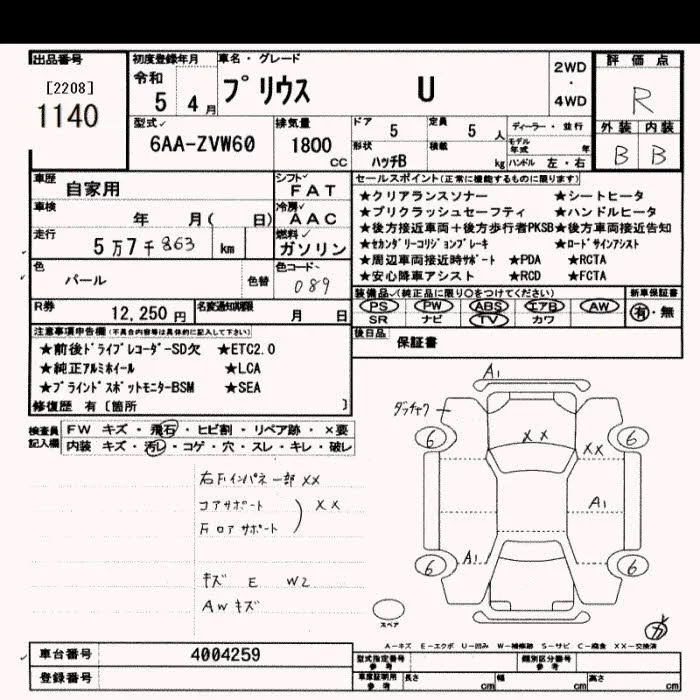 出品番号
[2208]
1140
初度登録年月
令和
5 4月
車名・グレード
プリウス U
2WD
・
4WD
評価点
R
外装 内装
B B
型式✓
6AA-ZVW60
排気量
1800
CC
ドア
5
定員
5 人
形状
ハッチB
積載
kg
ディーラー・並行
モデル
年式
年
ハンドル 左・右
車歴 自家用
シフト✓
FAT
車検
年 月( 日)
冷房✓
AAC
走行
5万7千863 km
燃料✓
ガソリン
色
パール
色替
色コード✓
089
R券
12,250円
名変通知期限
月 日
セールスポイント(正常に機能するものに限ります)
★クリアランスソナー ★シートヒータ
★プリクラッシュセーフティ ★ハンドルヒータ
★後方接近車両+後方歩行者PKSB★後方車両接近告知
★セカンダリーコリジョンブレーキ ★ロードサインアシスト
★周辺車両接近時サポート ★PDA ★RCTA
★安心降車アシスト ★RCD ★FCTA
装備品✓(純正品に限り○をつけてください)
PS PW ABS エアB AW
SR ナビ TV カワ
新車保証書
有・無
後日品
保証書
注意事項申告欄(不具合内容等は具体的に記入して下さい)
★前後ドライブレコーダーSD欠 ★ETC2.0
★純正アルミホイール ★LCA
★ブラインドスポットモニターBSM ★SEA
修復歴 有〔箇所 〕
検査員
記入欄
FW キズ・飛石・ヒビ割・リペア跡・×要
内装 キズ・汚レ・コゲ・穴・スレ・キレ・破レ
右Fインパネ一部 XX
コアサポート
XX
Fロアサポート
キズ E W2
AWキズ
A1
6
XX
XX
6
A1
A1
6
6
スペア
A-キズ E-エクボ U-凹み W-補修跡 S-サビ C-腐食 XX-交換済
車台番号
4004259
登録番号
型式指定番号
参考
類別区分番号
参考
車庫証明用
参考
長さ
cm
幅
cm
高さ
cm